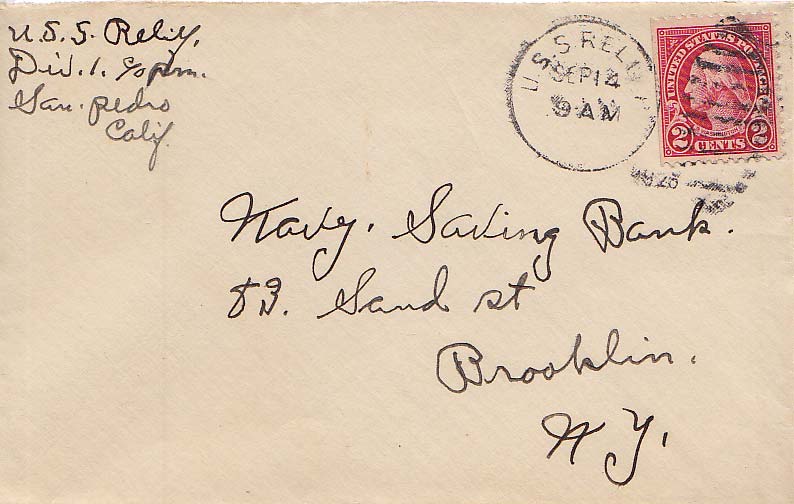 U.S.S. Relief,
Div. 1. c/o p.m.
San. pedro
Calif.
U.S.S. RELIEF
SEP 14
9 AM
1925
UNITED STATES POSTAGE
WASHINGTON
2 CENTS 2
Navy. Saving Bank.
83. Sand st
Brooklin.
N.Y.